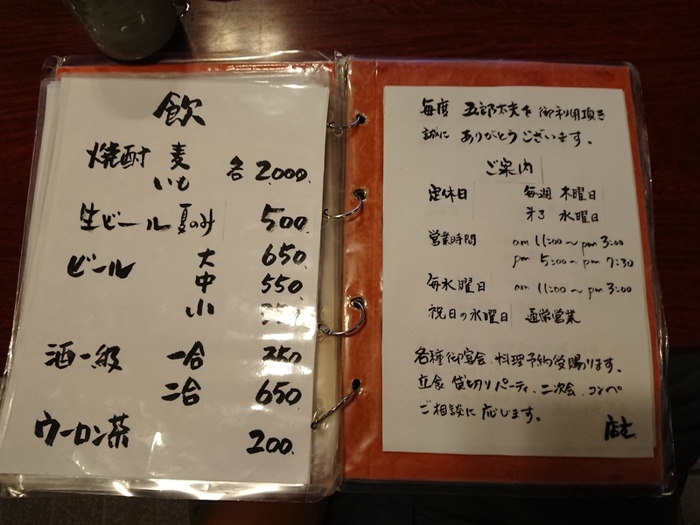 飲
焼酎 麦
いも 各 2.000.
生ビール 夏のみ 500
ビール 大 650
中 550
小
酒一級 一合 350
二合 650
ウーロン茶 200.
毎度 五郎太夫を 御利用頂き
誠に ありがとうございます。
ご案内
定休日 毎週 木曜日
第3 水曜日
営業時間 am 11:00 ~ pm 3:00
pm 5:00 ~ pm 7:30
毎水曜日 am 11:00 ~ pm 3:00
祝日の水曜日 通常営業
各種御宴会、料理予約受賜ります。
立食 貸切りパーティ、二次会、コンペ
ご相談に応じます。
店主